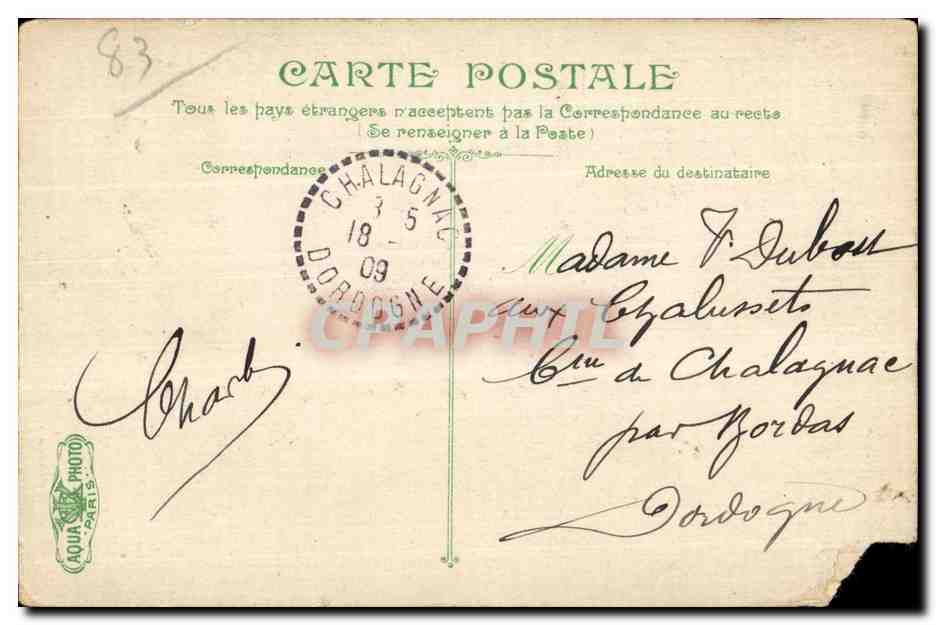 83
CARTE POSTALE
Tous les pays étrangers n'acceptent pas la Correspondance au recto
(Se renseigner à la Poste)
Correspondance
Adresse du destinataire
CHALAGNAC
3 5
18 -
09
DORDOGNE
CPAPHIL
Madame
aux Chalussets
Cne de Chalagnac
par Bordas
Dordogne
AQUA PHOTO
PARIS